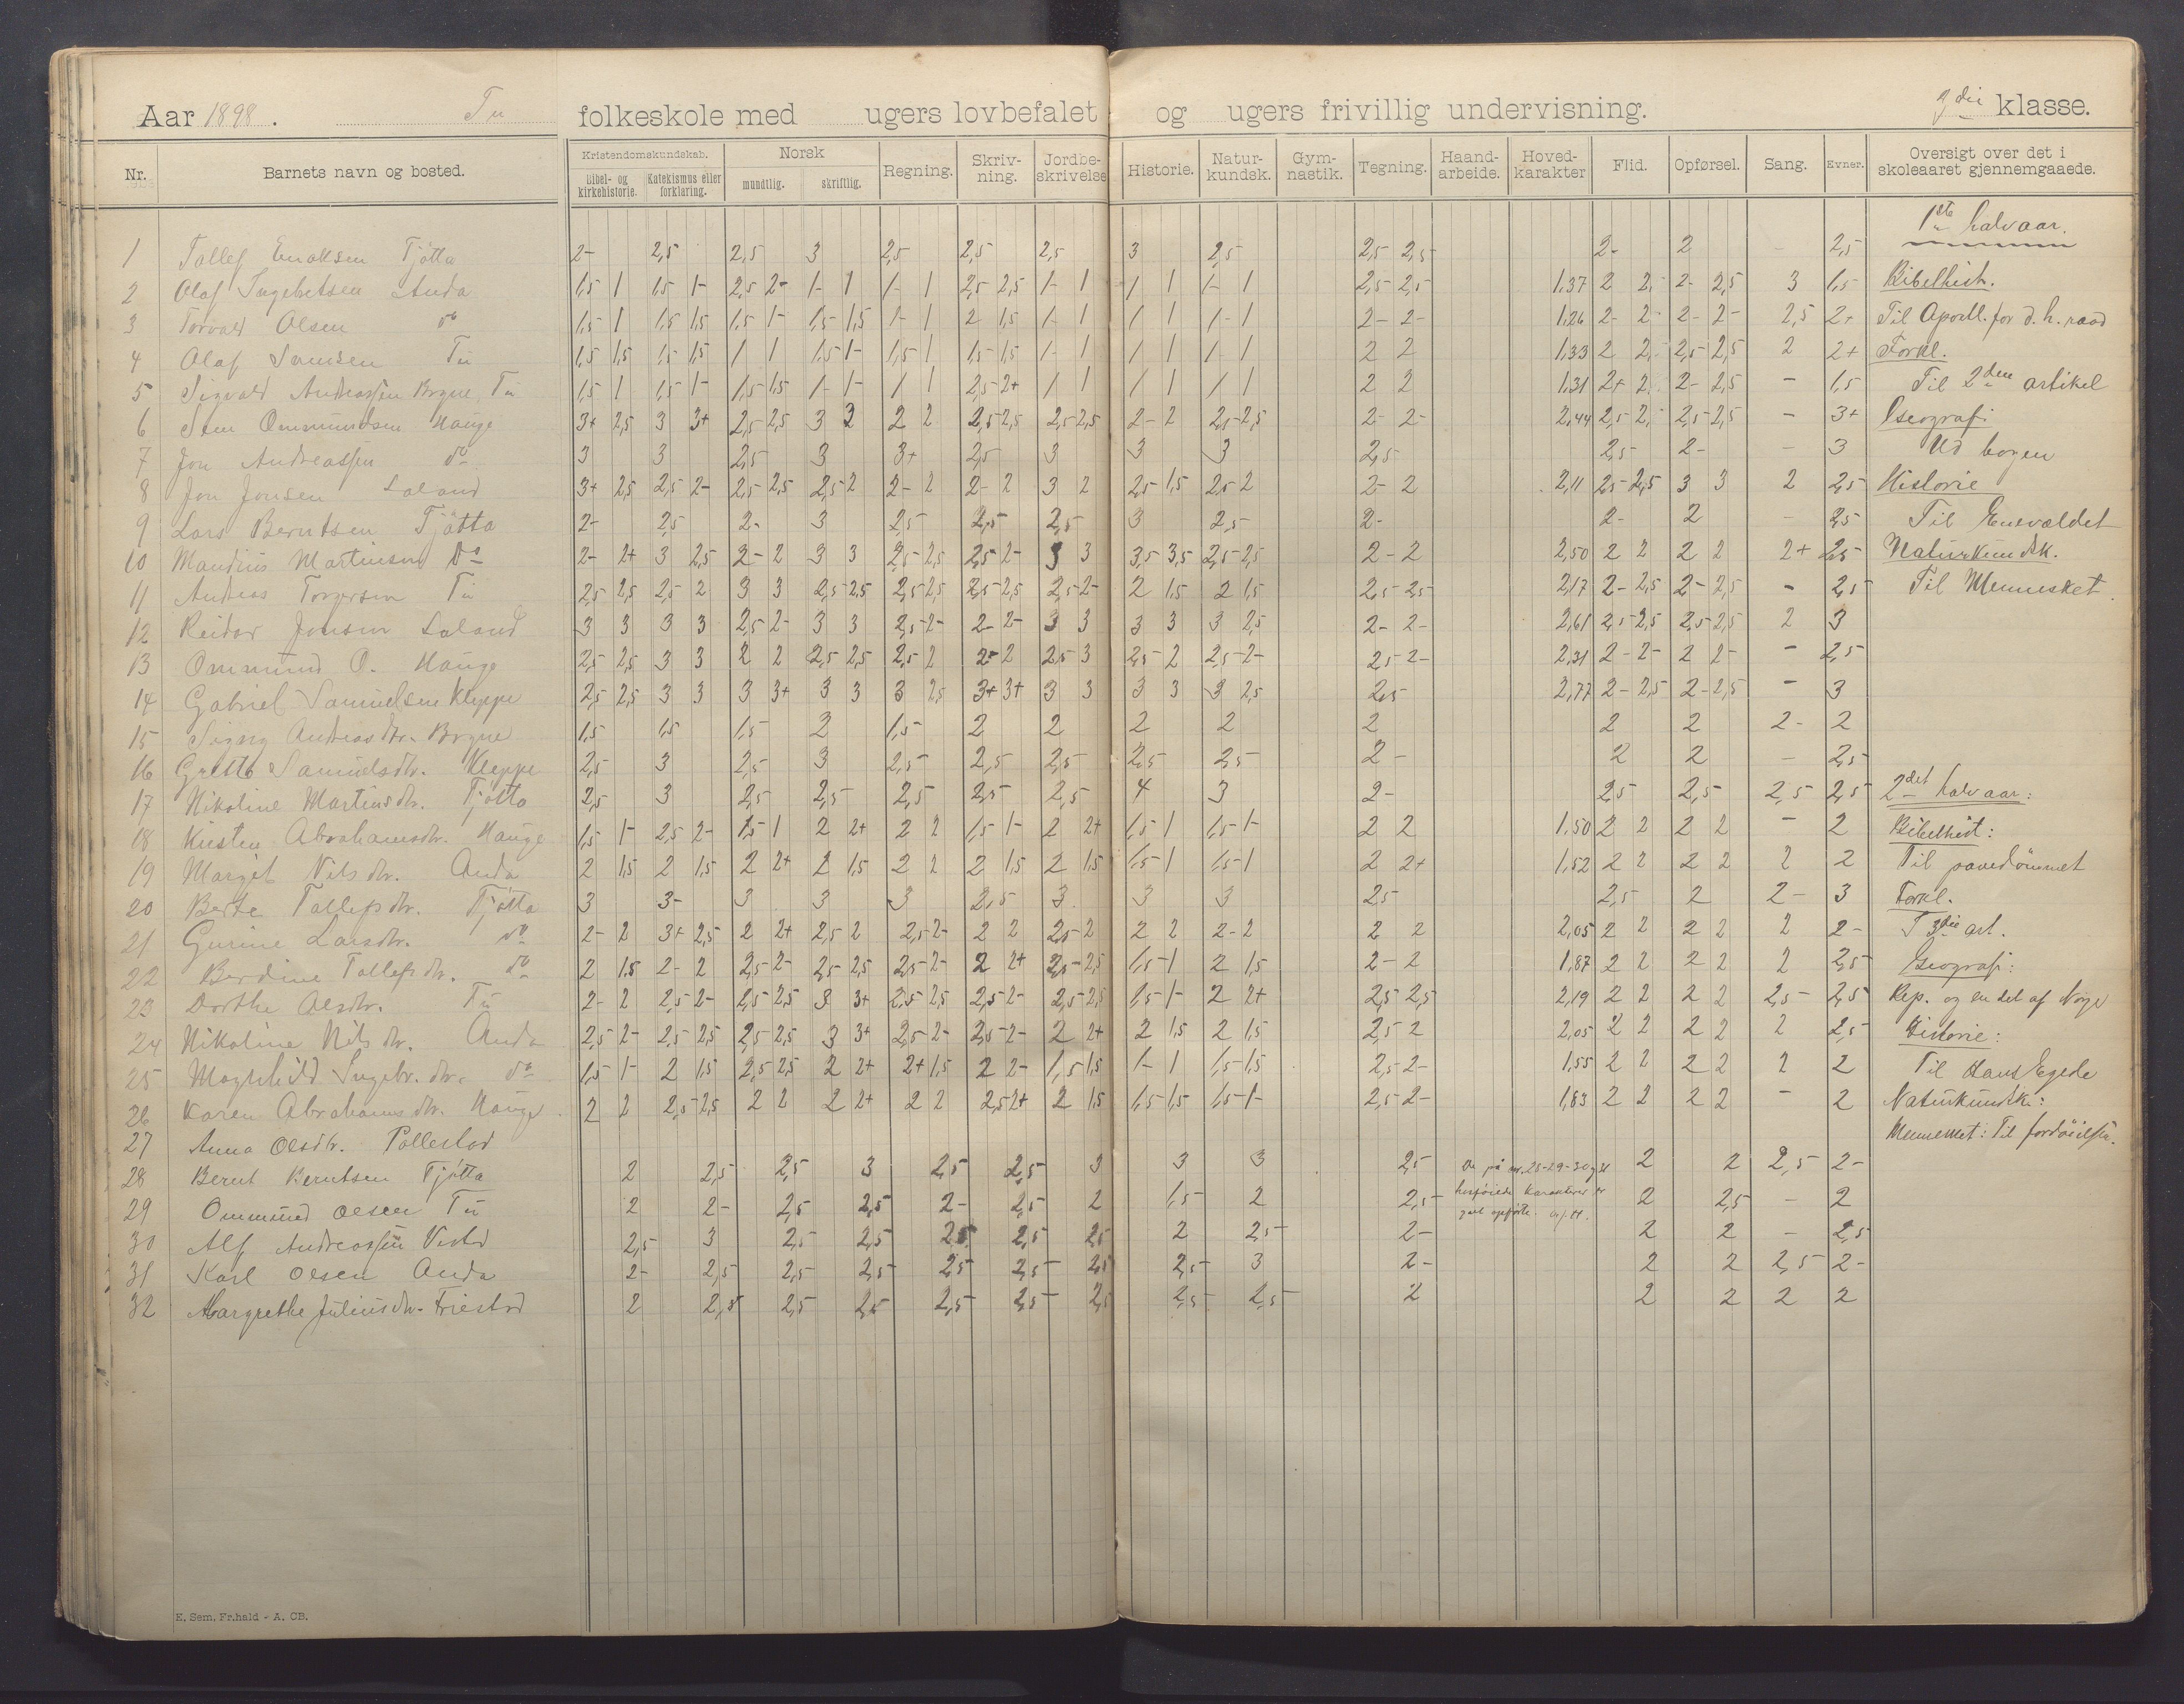 Aar 1898. Tu folkeskole med ugers lovbefalet og ugers frivillig undervisning. 3die klasse.
Nr. Barnets navn og bosted. Kristendomskundskab. Bibel- og kirkehistorie. Katekismus eller forklaring. Norsk mundtlig. skriftlig. Regning. Skriv-ning. Jordbe-skrivelse Historie. Natur-kundsk. Gym-nastik. Tegning. Haand-arbeide. Hoved-karakter Flid. Opførsel. Sang. Evner. Oversigt over det i skoleaaret gjennemgaaede.
1ste halvaar.
1 Tollef Tjøtta 2- 2,5 2,5 3 2,5 2,5 2,5 3 2,5 2,5 2,5- 2- 2 - 2,5
2 Olaf Ingebretsen Anda 1,5 1 1,5 1- 2,5 2- 1- 1 1- 1 2,5 2,5 1- 1 1 1 1- 1 2,5- 2,5- 1,37 2 2,- 2- 2,5 3 1,5 Bibelhist.
3 Torvald Olsen do 1,5 1 1,5 1,5 1,5 1- 1,5- 1,5 1- 1 2 1,5 1- 1 1 1 1- 1 2- 2- 1,26 2- 2- 2- 2- 2,5 2+ Til Apostl. for d. h. raad
4 Olaf Tu 1,5 1,5 1,5 1,5 1 1 1,5 1- 1,5 1 1,5- 1,5 1- 1 1 1 1 1 2 2 1,33 2 2,- 2,5 2,5 2 2+ Forkl.
5 Sigvald Andreassen Bryne, Tu 1,5 1 1,5 1- 1,5 1,5 1- 1- 1 1 2,5 2+ 1 1 1 1 1 1 2 2 1,31 2+ 2 2- 2,5 - 1,5 Til 2den artikel
6 Ommundsen Hauge 3+ 2,5 3 3+ 2,5 2,5 3 3 2 2 2,5 2,5 2,5 2,5 2- 2 2,5- 2,5 2- 2- 2,44 2,5 2,- 2,5 2,5 - 3+ Geografi
7 Jon Andreassen do 3 3 2,5 3 3+ 2,5 3 3 3 2,5 2,5 2- - 3 Ud bogen
8 Jon Jonsen Laland 3+ 2,5 2,5 2- 2,5 2,5 2,5 2 2- 2 2- 2 3 2 2,5 1,5 2,5 2 2- 2 2,11 2,5 2,5 3 3 2 2,5 Historie
9 Lars Berntsen Tjøtta 2- 2,5 2- 3 2,5 2,5 2,5 3 2,5 2- 2- 2 - 2,5 Til Enevældet
10 Mandius Martinsen do 2- 2+ 3 2,5 2- 2 3 3 2,5 2,5 2,5 2- 3 3 3,5 3,5 2,5 2,5 2- 2 2,50 2 2 2 2 2+ 2,5 Naturkundsk.
11 Andreas Torgersen Tu 2,5 2,5 2,5 2 3 3 2,5 2,5 2,5 2,5 2,5 2,5 2,5 2- 2 1,5 2 1,5 2,5 2,5 2,17 2- 2,5 2- 2,5 - 2,5 Til Mennesket.
12 Reidar Jonsen Laland 3 3 3 3 2,5 2- 3 3 2,5 2- 2- 2- 3 3 3 3 3 2,5 2- 2- 2,61 2,5 2,5 2,5 2,5 2 3
13 Ommund O. Hauge 2,5 2,5 3 3 2 2 2,5 2,5 2,5 2 2- 2 2,5 3 2,5 2 2,5 2- 2,5 2- 2,31 2- 2- 2 2- - 2,5
14 Gabriel Samuelsen Kleppe 2,5 2,5 3 3 3 3+ 3 3 3 2,5 3+ 3+ 3 3 3 3 3 2,5 2,5 2,77 2- 2,5 2- 2,5 - 3
15 Signy Andreasdtr. Bryne 1,5 1,5 1,5 2 1,5 2 2 2 2 2 2 2 2- 2
16 Samuelsdtr. Kleppe 2,5 3 2,5 3 2,5 2,5 2,5 2,5 2,5 2- 2 2 - 2,5
17 Nikoline Martinsdtr. Tjøtta 2,5 3 2,5 2,5 2,5 2,5 2,5 4 3 2- 2,5 2,5 2,5 2,5 2det halvaar:
18 Kirsten Abrahamsdtr. Hauge 1,5 1- 2,5 2- 1,5 1 2 2+ 2 2 1,5 1- 2 2+ 1,5 1 1,5 1- 2 2 1,50 2 2 2 2 - 2 Bibelhist:
19 Margit Nilsdtr. Anda 2 1,5 2 1,5 2 2+ 2 1,5 2 2 2 1,5 2 1,5 1,5 1 1,5 1 2 2+ 1,52 2 2 2 2 2 2 Til pavedømmet
20 Berte Tollefsdtr. Tjøtta 3 3- 3 3 3 2,5 3 3 3 2,5 2,5 2 2- 3 Forkl.
21 Gurine Larsdtr. do 2- 2 3+ 2,5 2 2+ 2,5 2 2,5 2- 2 2 2,5 2 2 2 2- 2 2 2 2,05 2 2 2 2 2 2- T 3die art.
22 Berdine Tollefsdtr. do 2 1,5 2- 2 2,5 2- 2,5 2,5 2,5 2- 2 2+ 2,5 2,5 1,5 1 2 1,5 2- 2 1,87 2 2 2 2 2 2,5 Geografi:
23 Dorthe Olsdtr. Tu 2- 2 2,5 2- 2,5 2,5 3 3+ 2,5 2,5 2,5 2- 2,5 2,5 1,5 1- 2 2+ 2,5 2,5 2,19 2 2 2 2 2,5 2,5 Rep. og en del af Norge
24 Nikoline Nilsdtr. Anda 2,5 2- 2,5 2,5 2,5 2,5 3 3+ 2,5 2- 2,5 2- 2 2+ 2 1,5 2 1,5 2,5 2 2,05 2 2 2 2 2 2,5 Historie:
25 Magnhild Ingebr.dtr. do 1,5 1- 2 1,5 2,5 2,5 2 2+ 2+ 1,5 2 2- 1,5 1,5 1- 1 1,5 1,5 2,5 2- 1,55 2 2 2 2 2 2 Til Hans Egede
26 Karen Abrahamsdtr. Hauge 2 2 2,5 2,5 2 2 2 2+ 2 2 2,5 2+ 2 1,5 1,5 1,5 1,5 1- 2,5 2- 1,83 2 2 2 2 - 2 Naturkundsk:
27 Anna Olsdtr. Pollestad Mennesket: Til fordøielsen.
28 Bernt Berntsen Tjøtta 2 2,5 2,5 3 2,5 2,5 3 3 3 2,5 De på nr. 28-29-30 2 2 2,5 2-
29 Ommund Olsen Tu 2 2- 2,5 2,5 2- 2,5 2 1,5 2 2,5 karakterer er 2 2,5 - 2
30 Alf Andreassen 2,5 3 2,5 2,5 2,5 2,5 2,5 2 2,5 2- 2 2 - 2,5
31 Karl Olsen Anda 2- 2,5 2,5 2,5 2,5 2,5 2,5 2,5 3 2- 2 2 2,5 2-
32 Margrethe Juliusdtr. Friestad 2 2,5 2,5 2,5 2,5 2,5 2,5 2,5 2,5 2 2 2 2 2
E. Sem. Fr.hald - A. CB.